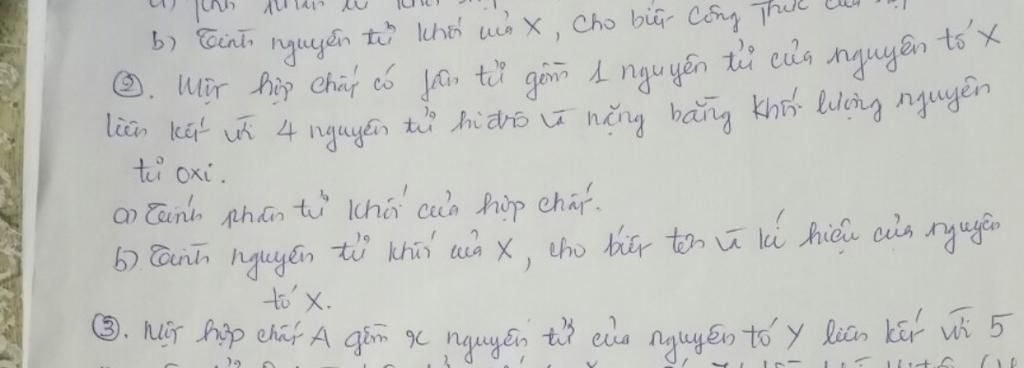 b) Tính nguyên tử khối của X, cho biết công thức của
②. Một hợp chất có phân tử gồm 1 nguyên tử của nguyên tố X
liên kết với 4 nguyên tử hiđro và nặng bằng khối lượng nguyên
tử oxi.
a) Tính phân tử khối của hợp chất.
b) Tính nguyên tử khối của X, cho biết tên và kí hiệu của nguyên
tố X.
③. Một hợp chất A gồm x nguyên tử của nguyên tố Y liên kết với 5